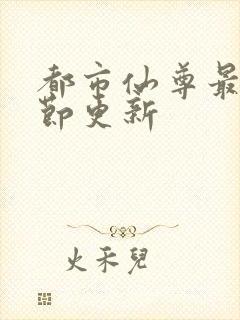 都市仙尊最
節更新
火禾兒